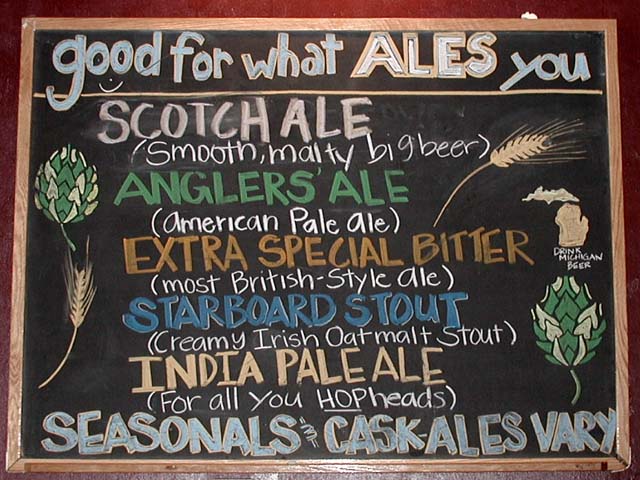 good for what ALES you
SCOTCH ALE
(Smooth, malty big beer)
ANGLERS' ALE
(American Pale ale)
EXTRA SPECIAL BITTER
(most British-Style ale)
DRINK
MICHIGAN
BEER
STARBOARD STOUT
(Creamy Irish Oatmalt Stout)
INDIA PALE ALE
(For all you HOPheads)
SEASONALS & CASK-ALES VARY